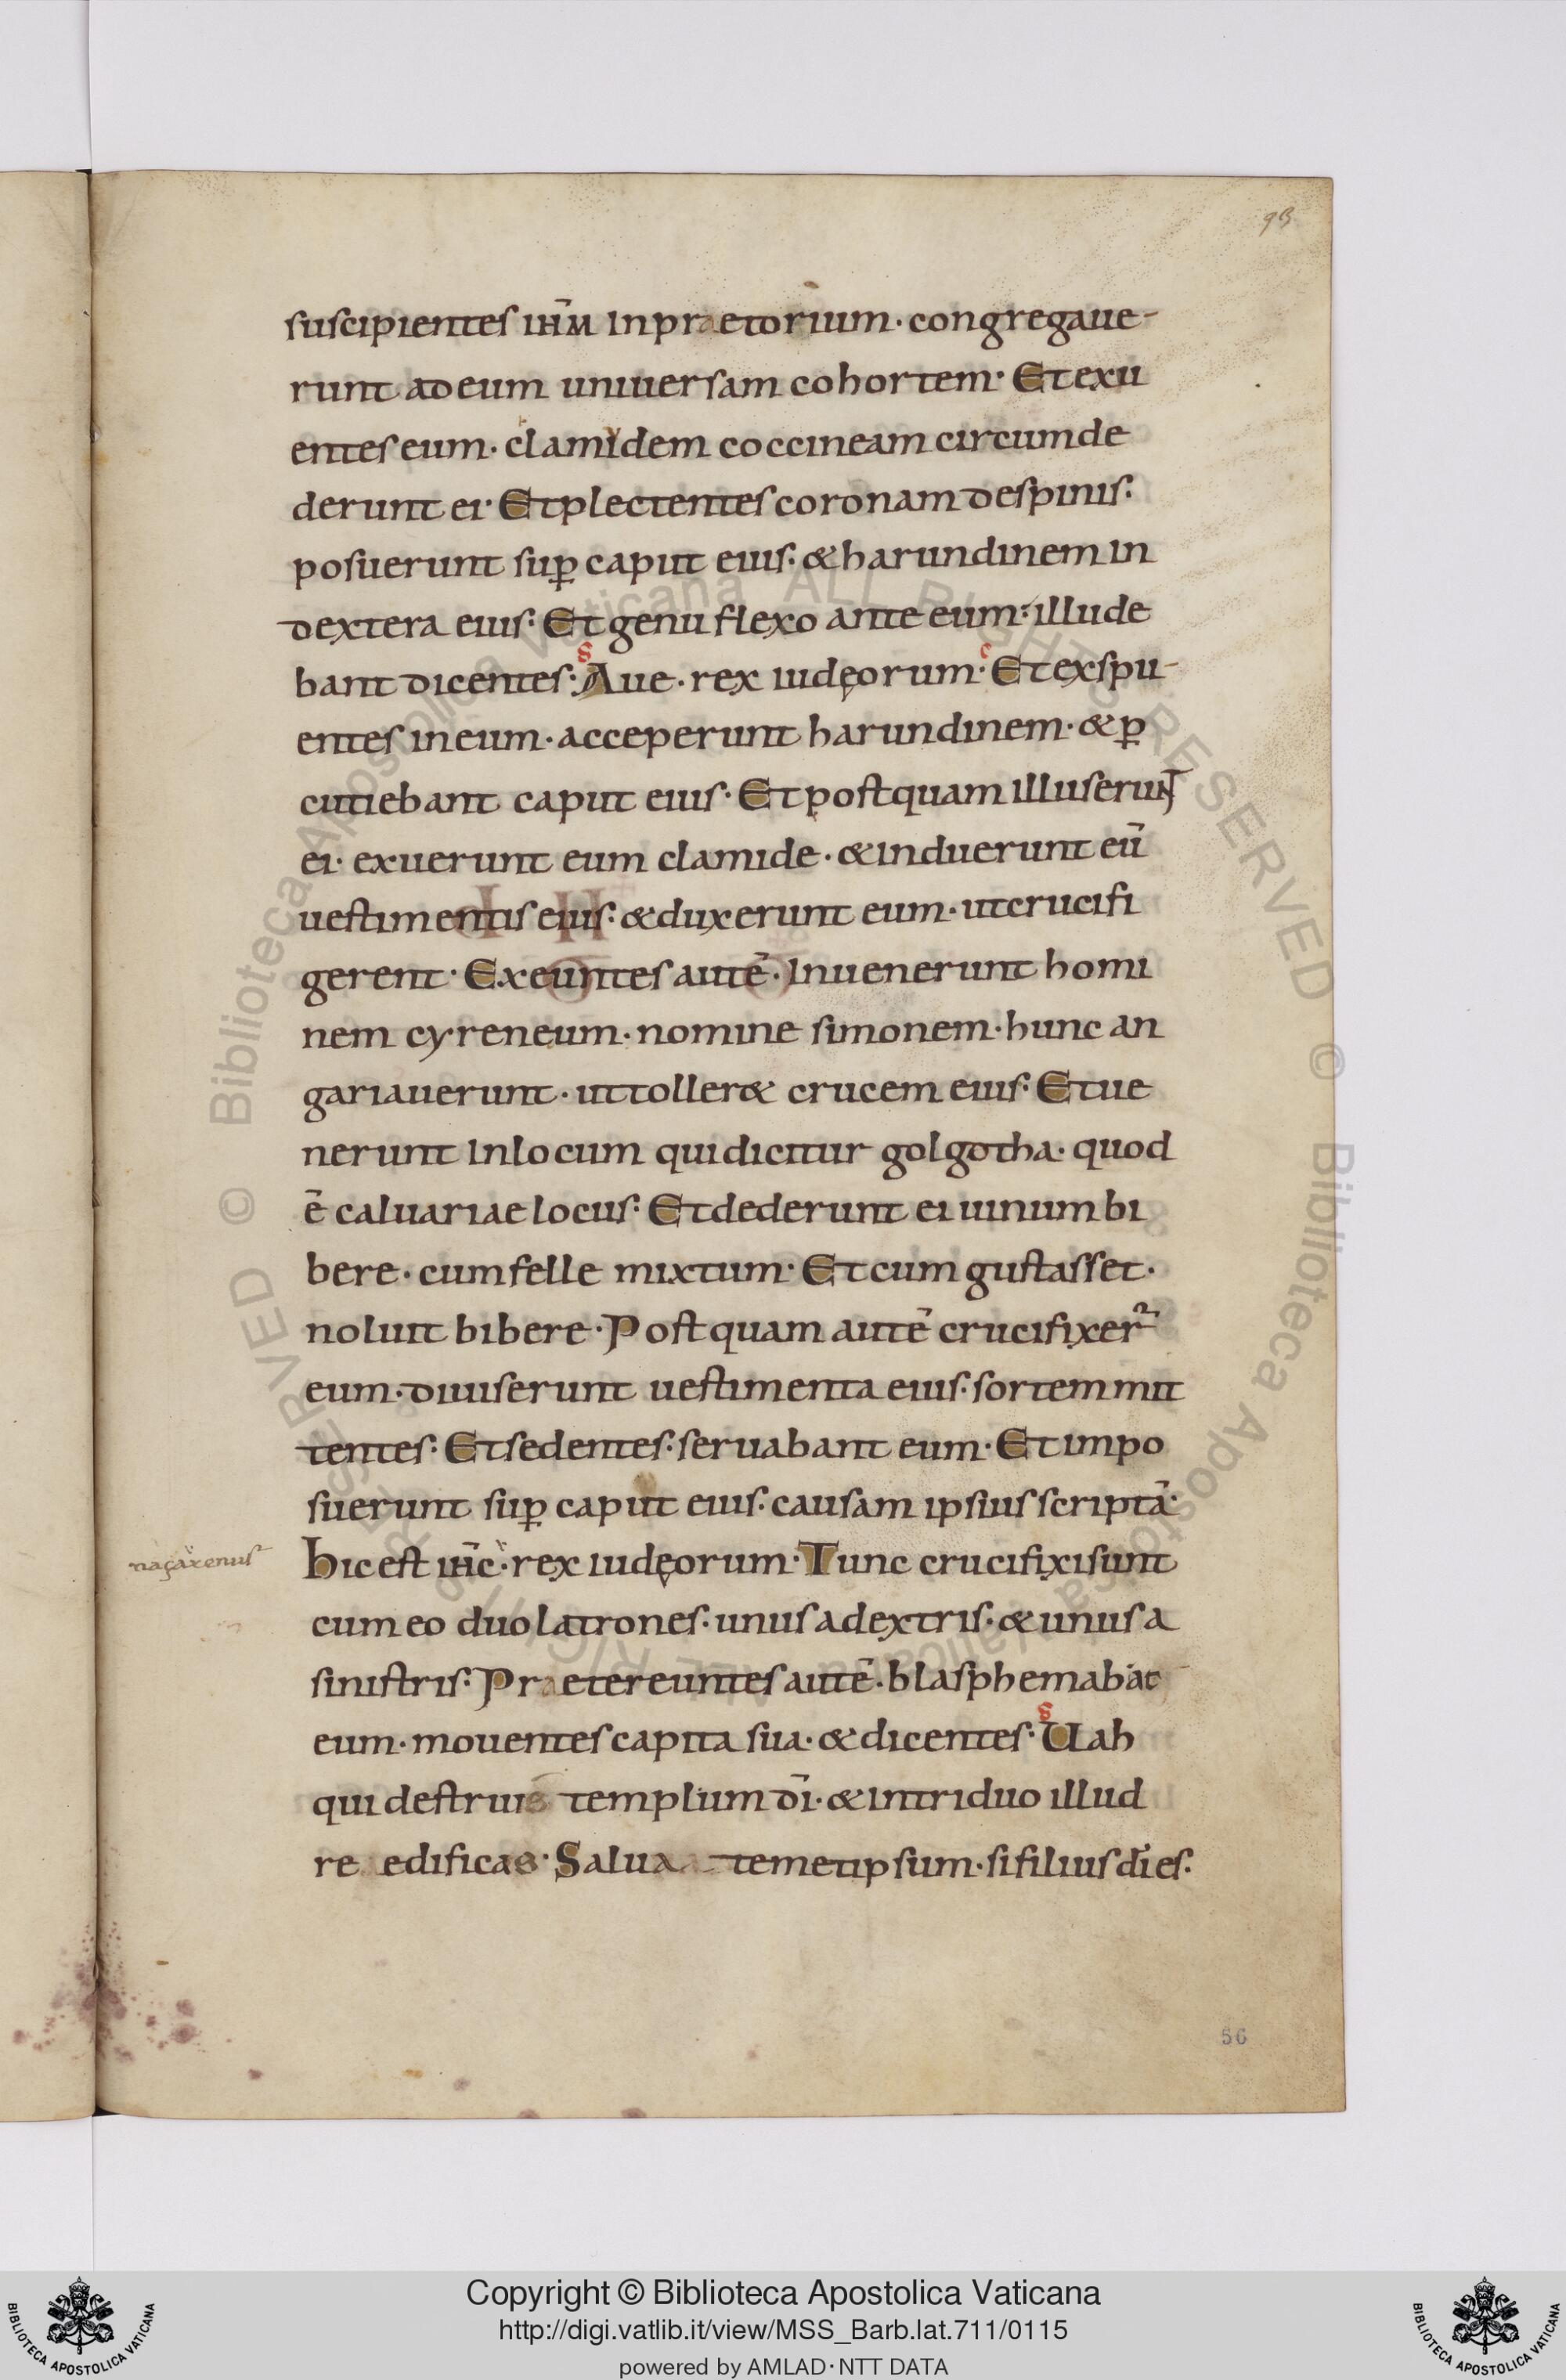 93
suscipientes ihm̅ in praetorium · congregaue-
runt ad eum uniuersam cohortem · Et exu
entes eum · clamydem coccineam circumde
derunt ei · Et plectentes coronam de spinis :
posuerunt sup̱ caput eius · & harundinem in
dextera eius : Et genu flexo ante eum : illude
bant dicentes : s Aue · rex iudęorum · c Et exspu-
entes in eum · acceperunt harundinem · & p̱
cutiebant caput eius · Et postquam illuserunt
ei · exuerunt eum clamide · & induerunt eū
uestimentis eius : & duxerunt eum · ut crucifi
gerent · Exeuntes autē · inuenerunt homi
nem cyreneum · nomine simonem · hunc an
gariauerunt · ut toller& crucem eius : Et ue
nerunt in locum qui dicitur golgotha · quod
ē caluariae locus : Et dederunt ei uinum bi
bere · cum felle mixtum · Et cum gustasset ·
noluit bibere · Postquam autē crucifixer̅
eum · diuiserunt uestimenta eius · sortem mit
tentes : Et sedentes · seruabant eum · Et impo
suerunt sup̱ caput eius · causam ipsius scriptā ·
naçarenus
hic est ih̅c · rex iudęorum · Tunc crucifixi sunt
cum eo duo latrones · unus a dextris · & unus a
sinistris : Praetereuntes autē · blasphemabāt
eum · mouentes capita sua · & dicentes · s Uah
qui destruis templum dī · & in triduo illud
re edificas · Salua temetipsum · si filius di es ·
56
© Biblioteca Apostolica Vaticana ALL RIGHTS RESERVED © Biblioteca Apostolica Vaticana ALL RIGHTS RESERVED
Copyright © Biblioteca Apostolica Vaticana
http://digi.vatlib.it/view/MSS_Barb.lat.711/0115
powered by AMLAD · NTT DATA
BIBLIOTECA APOSTOLICA VATICANA
BIBLIOTECA APOSTOLICA VATICANA